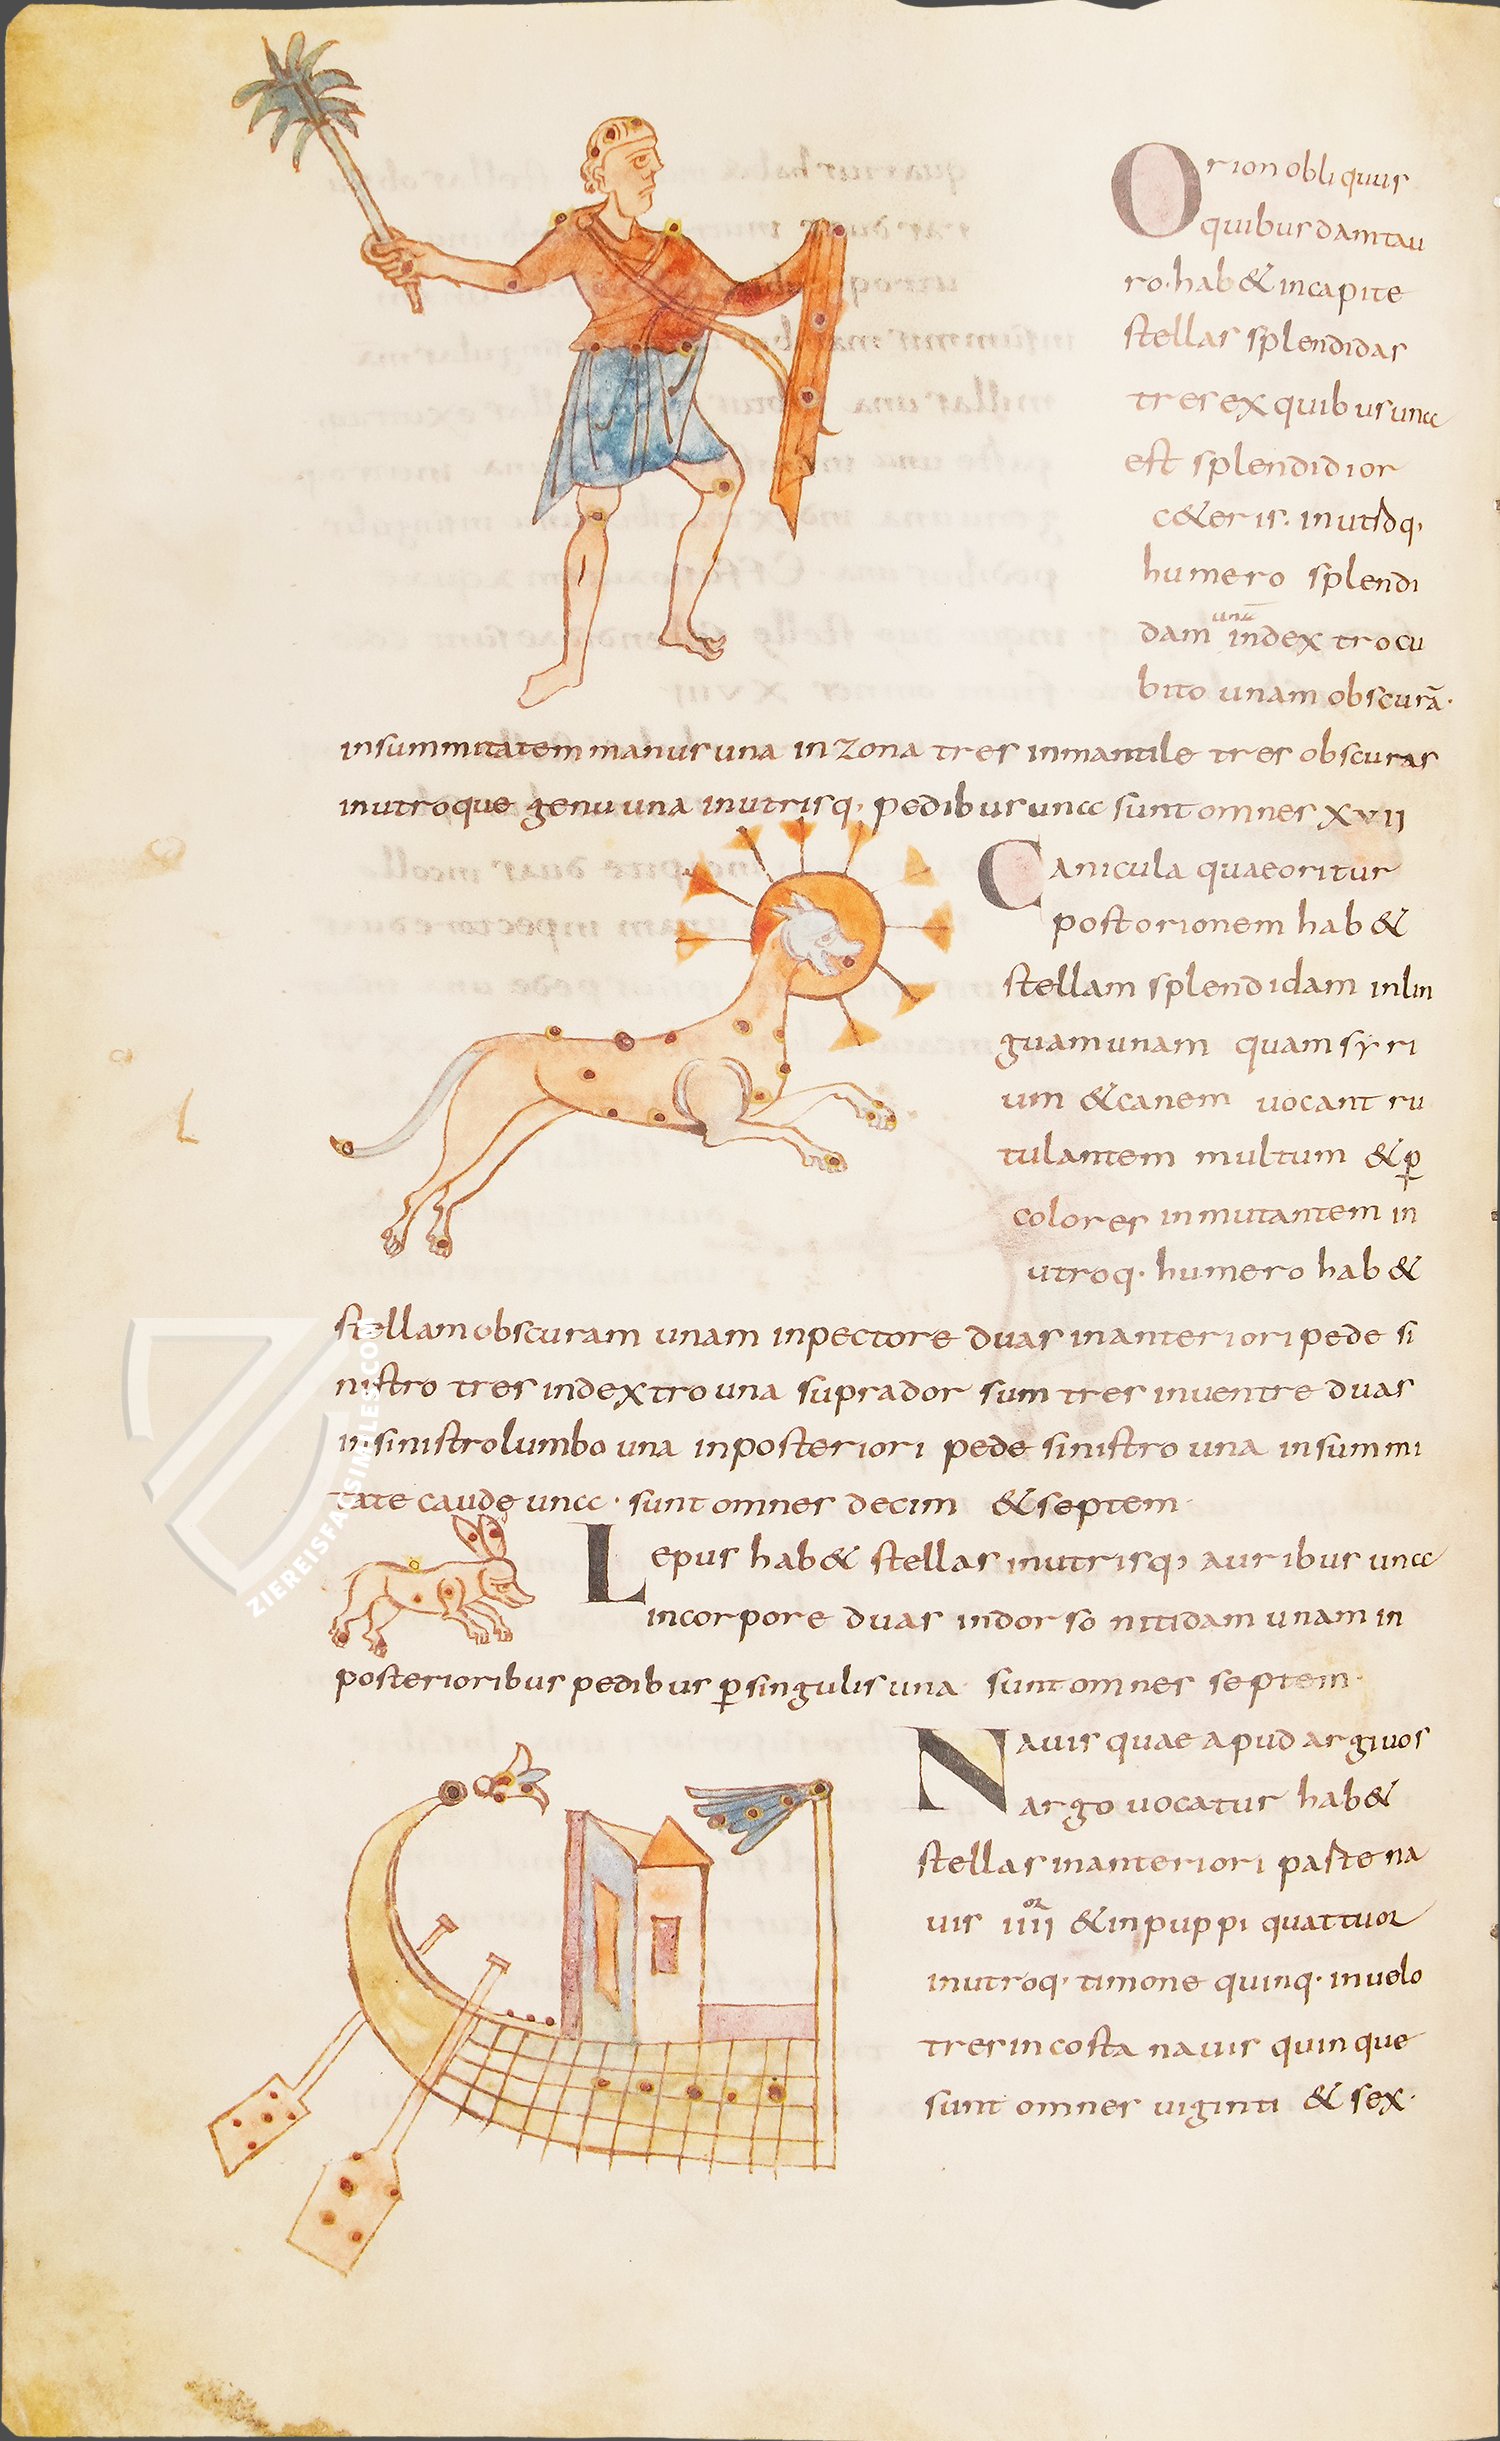 Orion obliquus
quibusdam tau
ro. hab& in capite
stellas splendidas
tres ex quibus una
est splendidior
c&eris. in utrq;
humero splendi
dam unā in dextro cu
bito unam obscurā.
in summitatem manus una in zona tres in mantile tres obscuras
in utroque genu una in utrisq; pedibus una sunt omnes XVII
Canicula quae oritur
post orionem hab&
stellam splendidam in lin
guam unam quam syri
um & canem vocant ru
tulantem multum & ꝑ
colores inmutantem in
utroq. humero hab&
stellam obscuram unam in pectore duas in anteriori pede si
nistro tres in dextro una supra dorsum tres in ventre duas
in sinistro lumbo una in posteriori pede sinistro una in summi
tate caude una. sunt omnes decim & septem.
Lepus hab& stellas in utrisq; auribus una
in corpore duas in dorso nitidam unam in
posterioribus pedibus ꝑ singulis una sunt omnes septem.
Navis quae apud argivos
argo vocatur hab&
stellas in anteriori paste na
vis IIII or & in puppi quattuor
in utroq. timone quinq. in velo
tres in costa navis quinque
sunt omnes viginti & sex.
ZIEREISFACSIMILES.COM